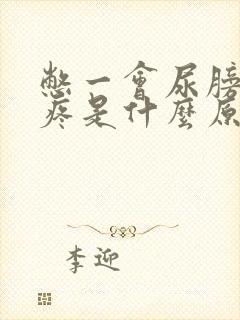 憋一會尿膀
疼是什麼原
李迎